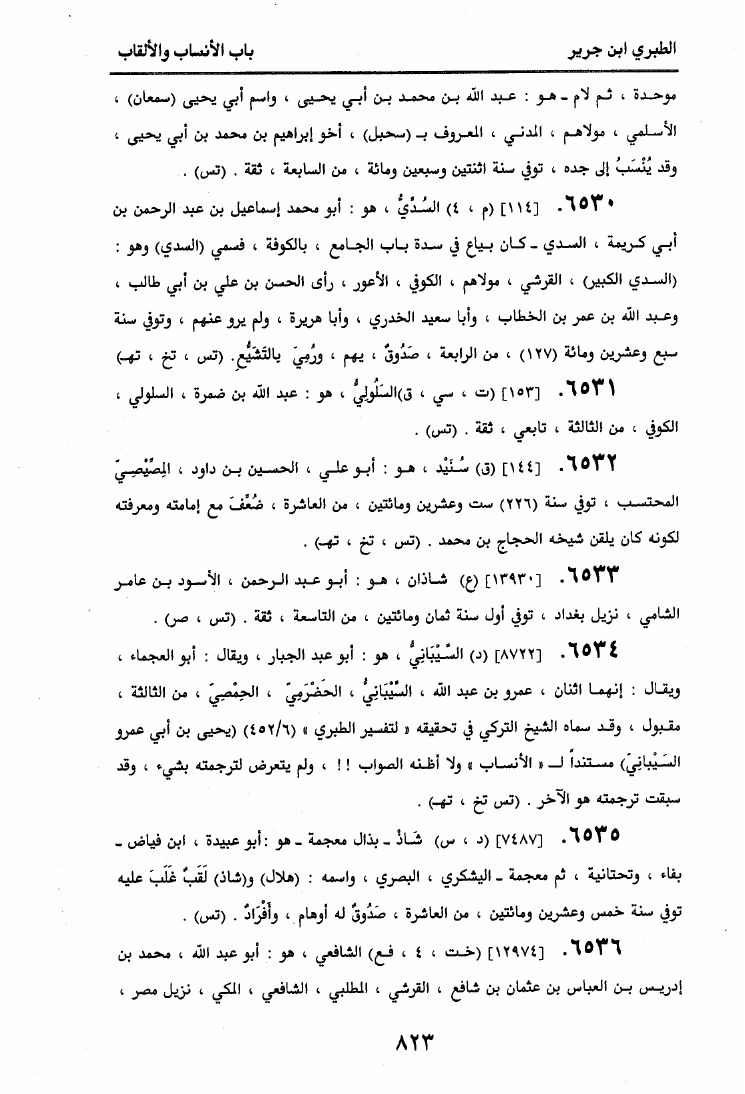 الطبري ابن جرير
باب الأنساب والألقاب
موحدة ، ثم لام ـ هو : عبد الله بن محمد بن أبي يحيى ، واسم أبي يحيى (سمعان) ،
الأسلمي ، مولاهم ، المدني ، المعروف بـ (سحبل) ، أخو إبراهيم بن محمد بن أبي يحيى ،
وقد يُنْسَبُ إلى جده ، توفي سنة اثنتين وسبعين ومائة ، من السابعة ، ثقة . (تس) .
٦٥٣٠. [١١٤] (م ، ٤) السُدِّيُّ ، هو : أبو محمد إسماعيل بن عبد الرحمن بن
أبي كريمة ، السدي ـ كان بياع في سدة باب الجامع ، بالكوفة ، فسمي (السدي) وهو :
(السدي الكبير) ، القرشي ، مولاهم ، الكوفي ، الأعور ، رأى الحسن بن علي بن أبي طالب ،
وعبد الله بن عمر بن الخطاب ، وأبا سعيد الخدري ، وأبا هريرة ، ولم يرو عنهم ، وتوفي سنة
سبع وعشرين ومائة (١٢٧) ، من الرابعة ، صَدُوقٌ ، يهم ، ورُمِيَ بالتَشَيُّعِ. (تس ، تخ ، تهـ)
٦٥٣١. [١٥٣] (ت ، سي ، ق)السَلُولِيُّ ، هو : عبد الله بن ضمرة ، السلولي ،
الكوفي ، من الثالثة ، تابعي ، ثقة . (تس) .
٦٥٣٢. [١٤٤] (ق) سُنَيْد ، هو : أبو علي ، الحسين بن داود ، المِصِّيْصِيّ
المحتسب ، توفي سنة (٢٢٦) ست وعشرين ومائتين ، من العاشرة ، ضُعِّفَ مع إمامته ومعرفته
لكونه كان يلقن شيخه الحجاج بن محمد . (تس ، تخ ، تهـ) .
٦٥٣٣. [١٣٩٣٠] (ع) شاذان ، هو : أبو عبد الرحمن ، الأسود بن عامر
الشامي ، نزيل بغداد ، توفي أول سنة ثمان ومائتين ، من التاسعة ، ثقة . (تس ، صر) .
٦٥٣٤. [٨٧٢٢] (د) السَّيْبَانِيُّ ، هو : أبو عبد الجبار ، ويقال : أبو العجماء ،
ويقال : إنهما اثنان ، عمرو بن عبد الله ، السَّيْبَانِيُّ ، الحَضْرَمِيّ ، الحِمْصِيّ ، من الثالثة ،
مقبول ، وقد سماه الشيخ التركي في تحقيقه « لتفسير الطبري » (٤٥٢/٦) (يحيى بن أبي عمرو
السَيْبَانِيّ) مستنداً لـ « الأنساب » ولا أظنه الصواب !! ، ولم يتعرض لترجمته بشيء ، وقد
سبقت ترجمته هو الآخر . (تس تخ ، تهـ) .
٦٥٣٥. [٧٤٨٧] (د ، س) شَاذْ ـ بذال معجمة ـ هو :أبو عبيدة ، ابن فياض ـ
بفاء ، وتحتانية ، ثم معجمة ـ اليشكري ، البصري ، واسمه : (هلال) و(شاذ) لَقَبٌ غَلَبَ عليه
توفي سنة خمس وعشرين ومائتين ، من العاشرة ، صَدُوقٌ له أوهام ، وأَفْرَادٌ . (تس) .
٦٥٣٦. [١٢٩٧٤] (خت ، ٤ ، فع) الشافعي ، هو : أبو عبد الله ، محمد بن
إدريس بن العباس بن عثمان بن شافع ، القرشي ، المطلبي ، الشافعي ، المكي ، نزيل مصر ،
٨٢٣